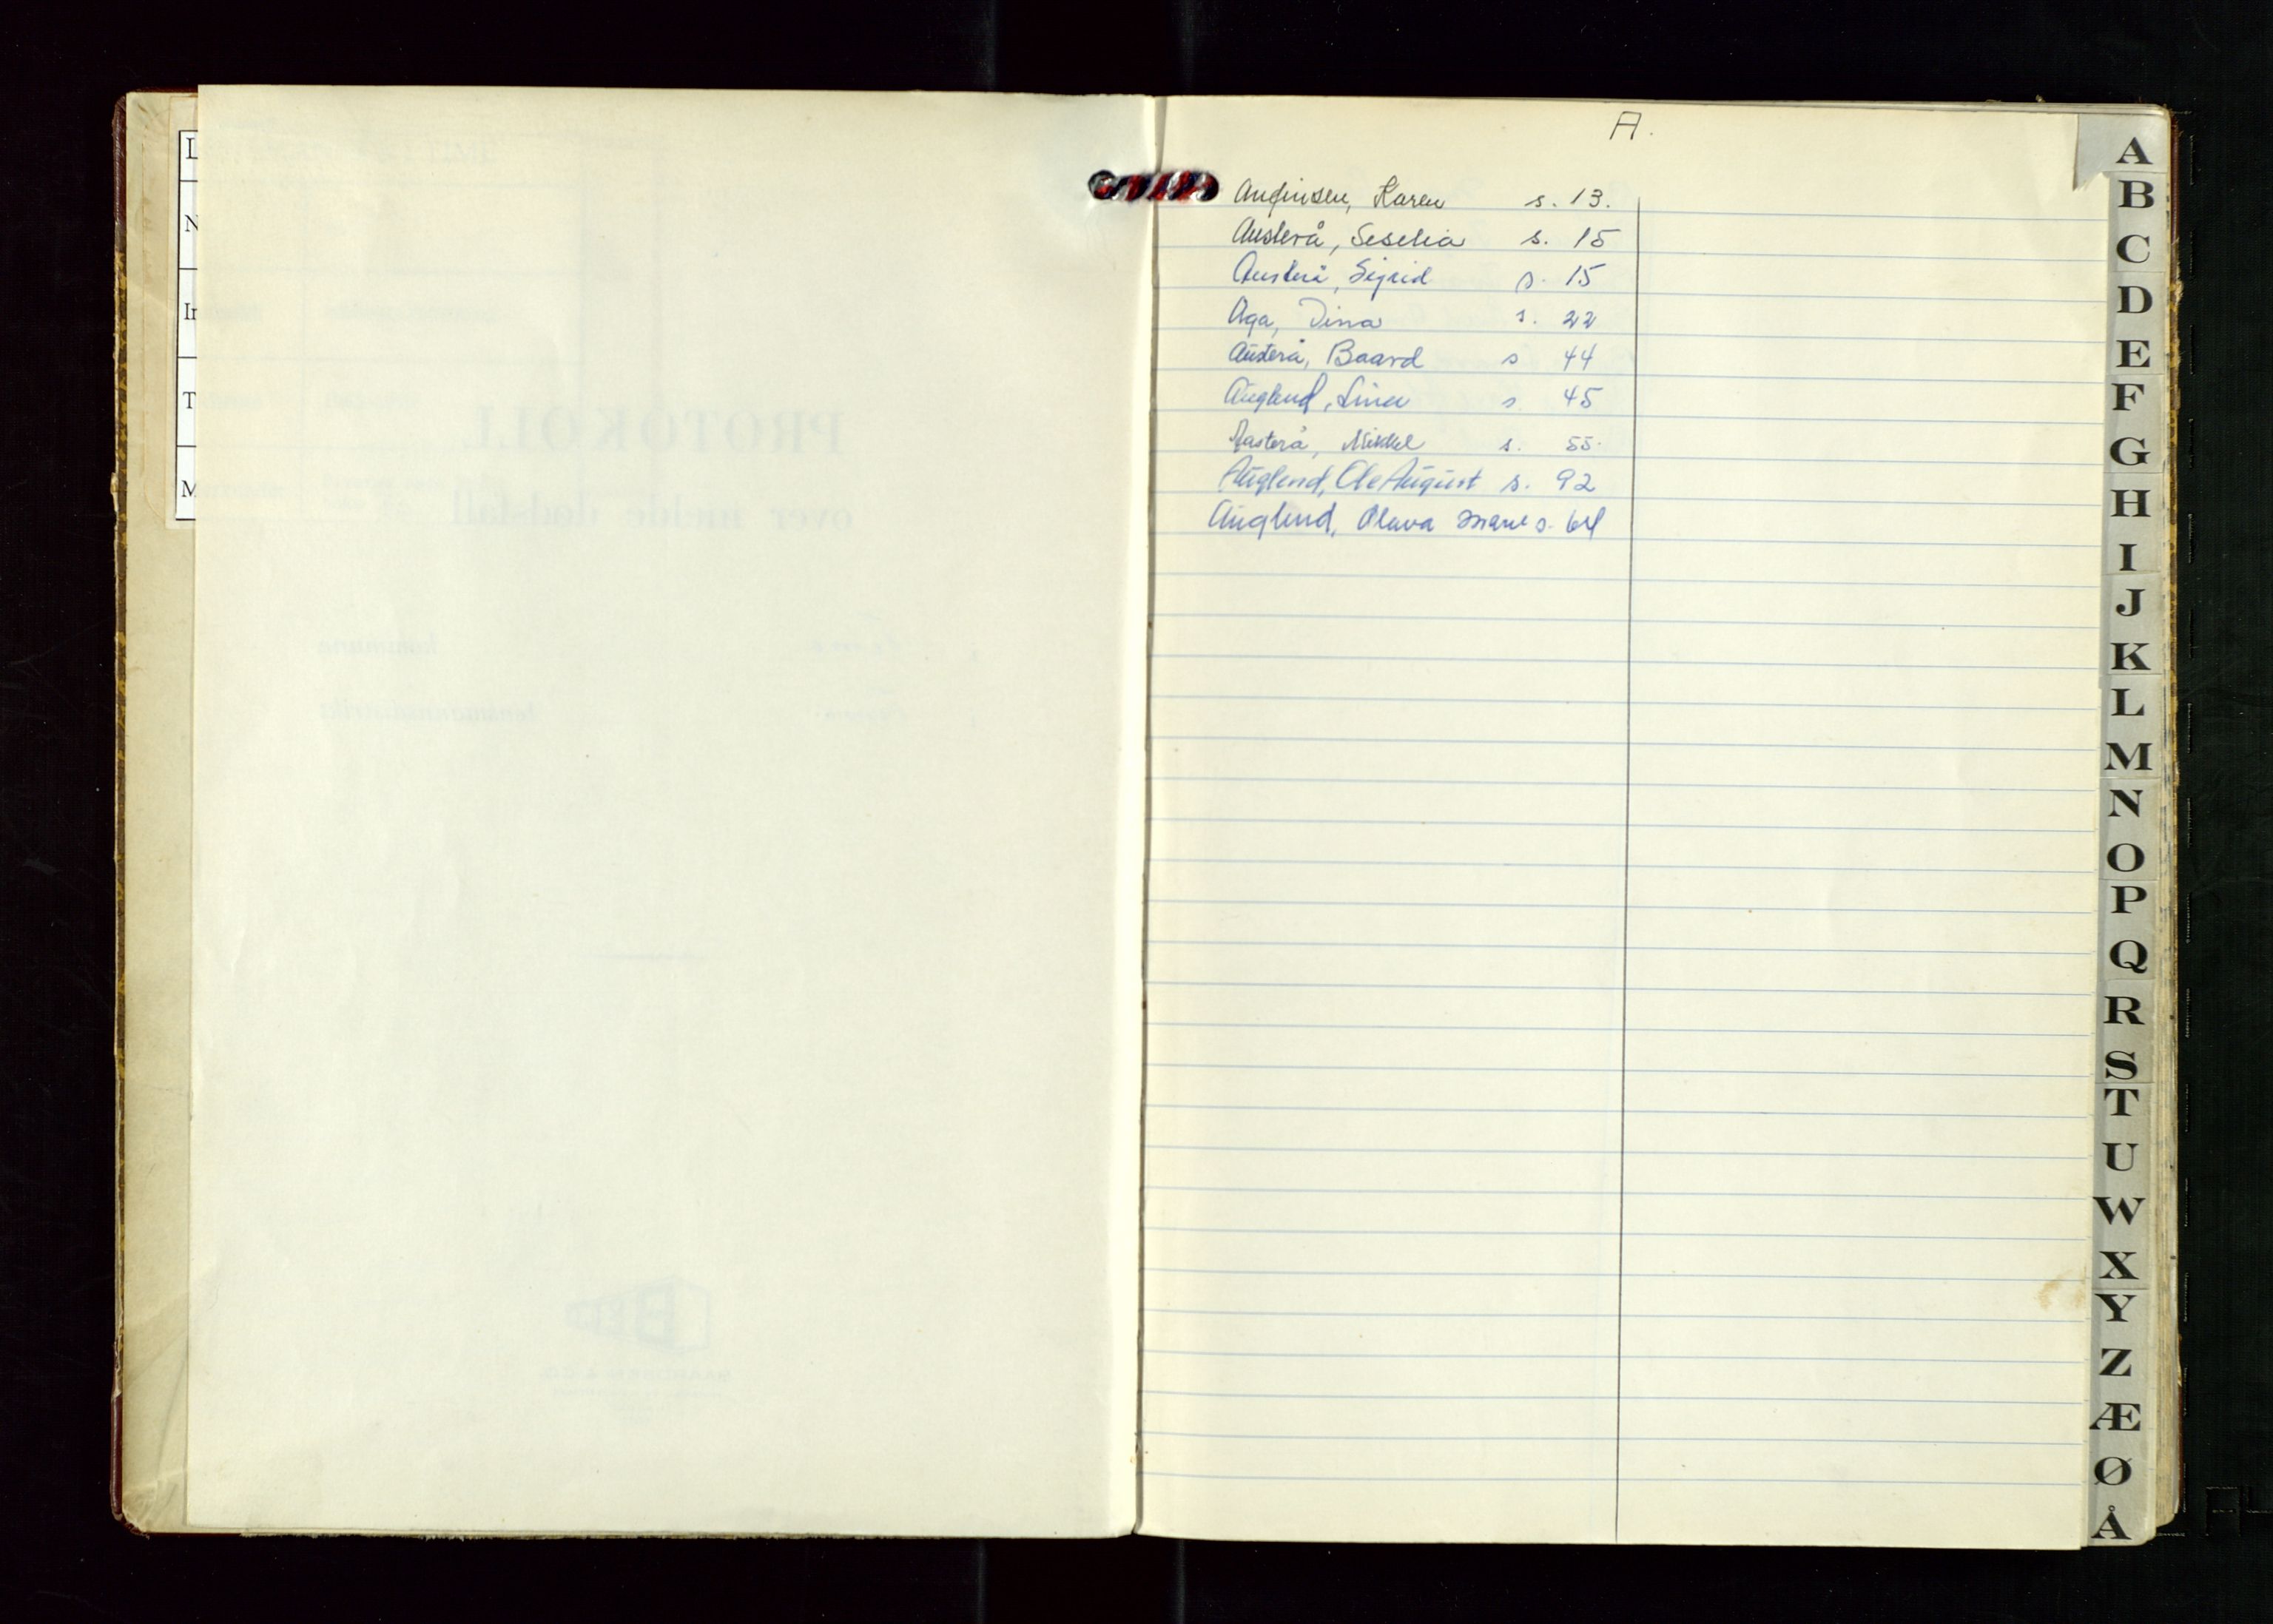 L
N
In
T
M
PROTOKOLL
over melde dødsfall
kommune
lensmannsdistrikt
A.
Anfinsen, Karen s. 13.
Austerå, Seselia s. 15
Austerå, Sigrid s. 15
Aga, Dina s. 22
Austerå, Baard s 44
Auglend, Lina s 45
Aasterå, Mikkel s. 55.
Auglend, Ole August s. 92
Auglend, Olava Marie s. 64
A
B
C
D
E
F
G
H
I
J
K
L
M
N
O
P
Q
R
S
T
U
W
X
Y
Z
Æ
Ø
Å